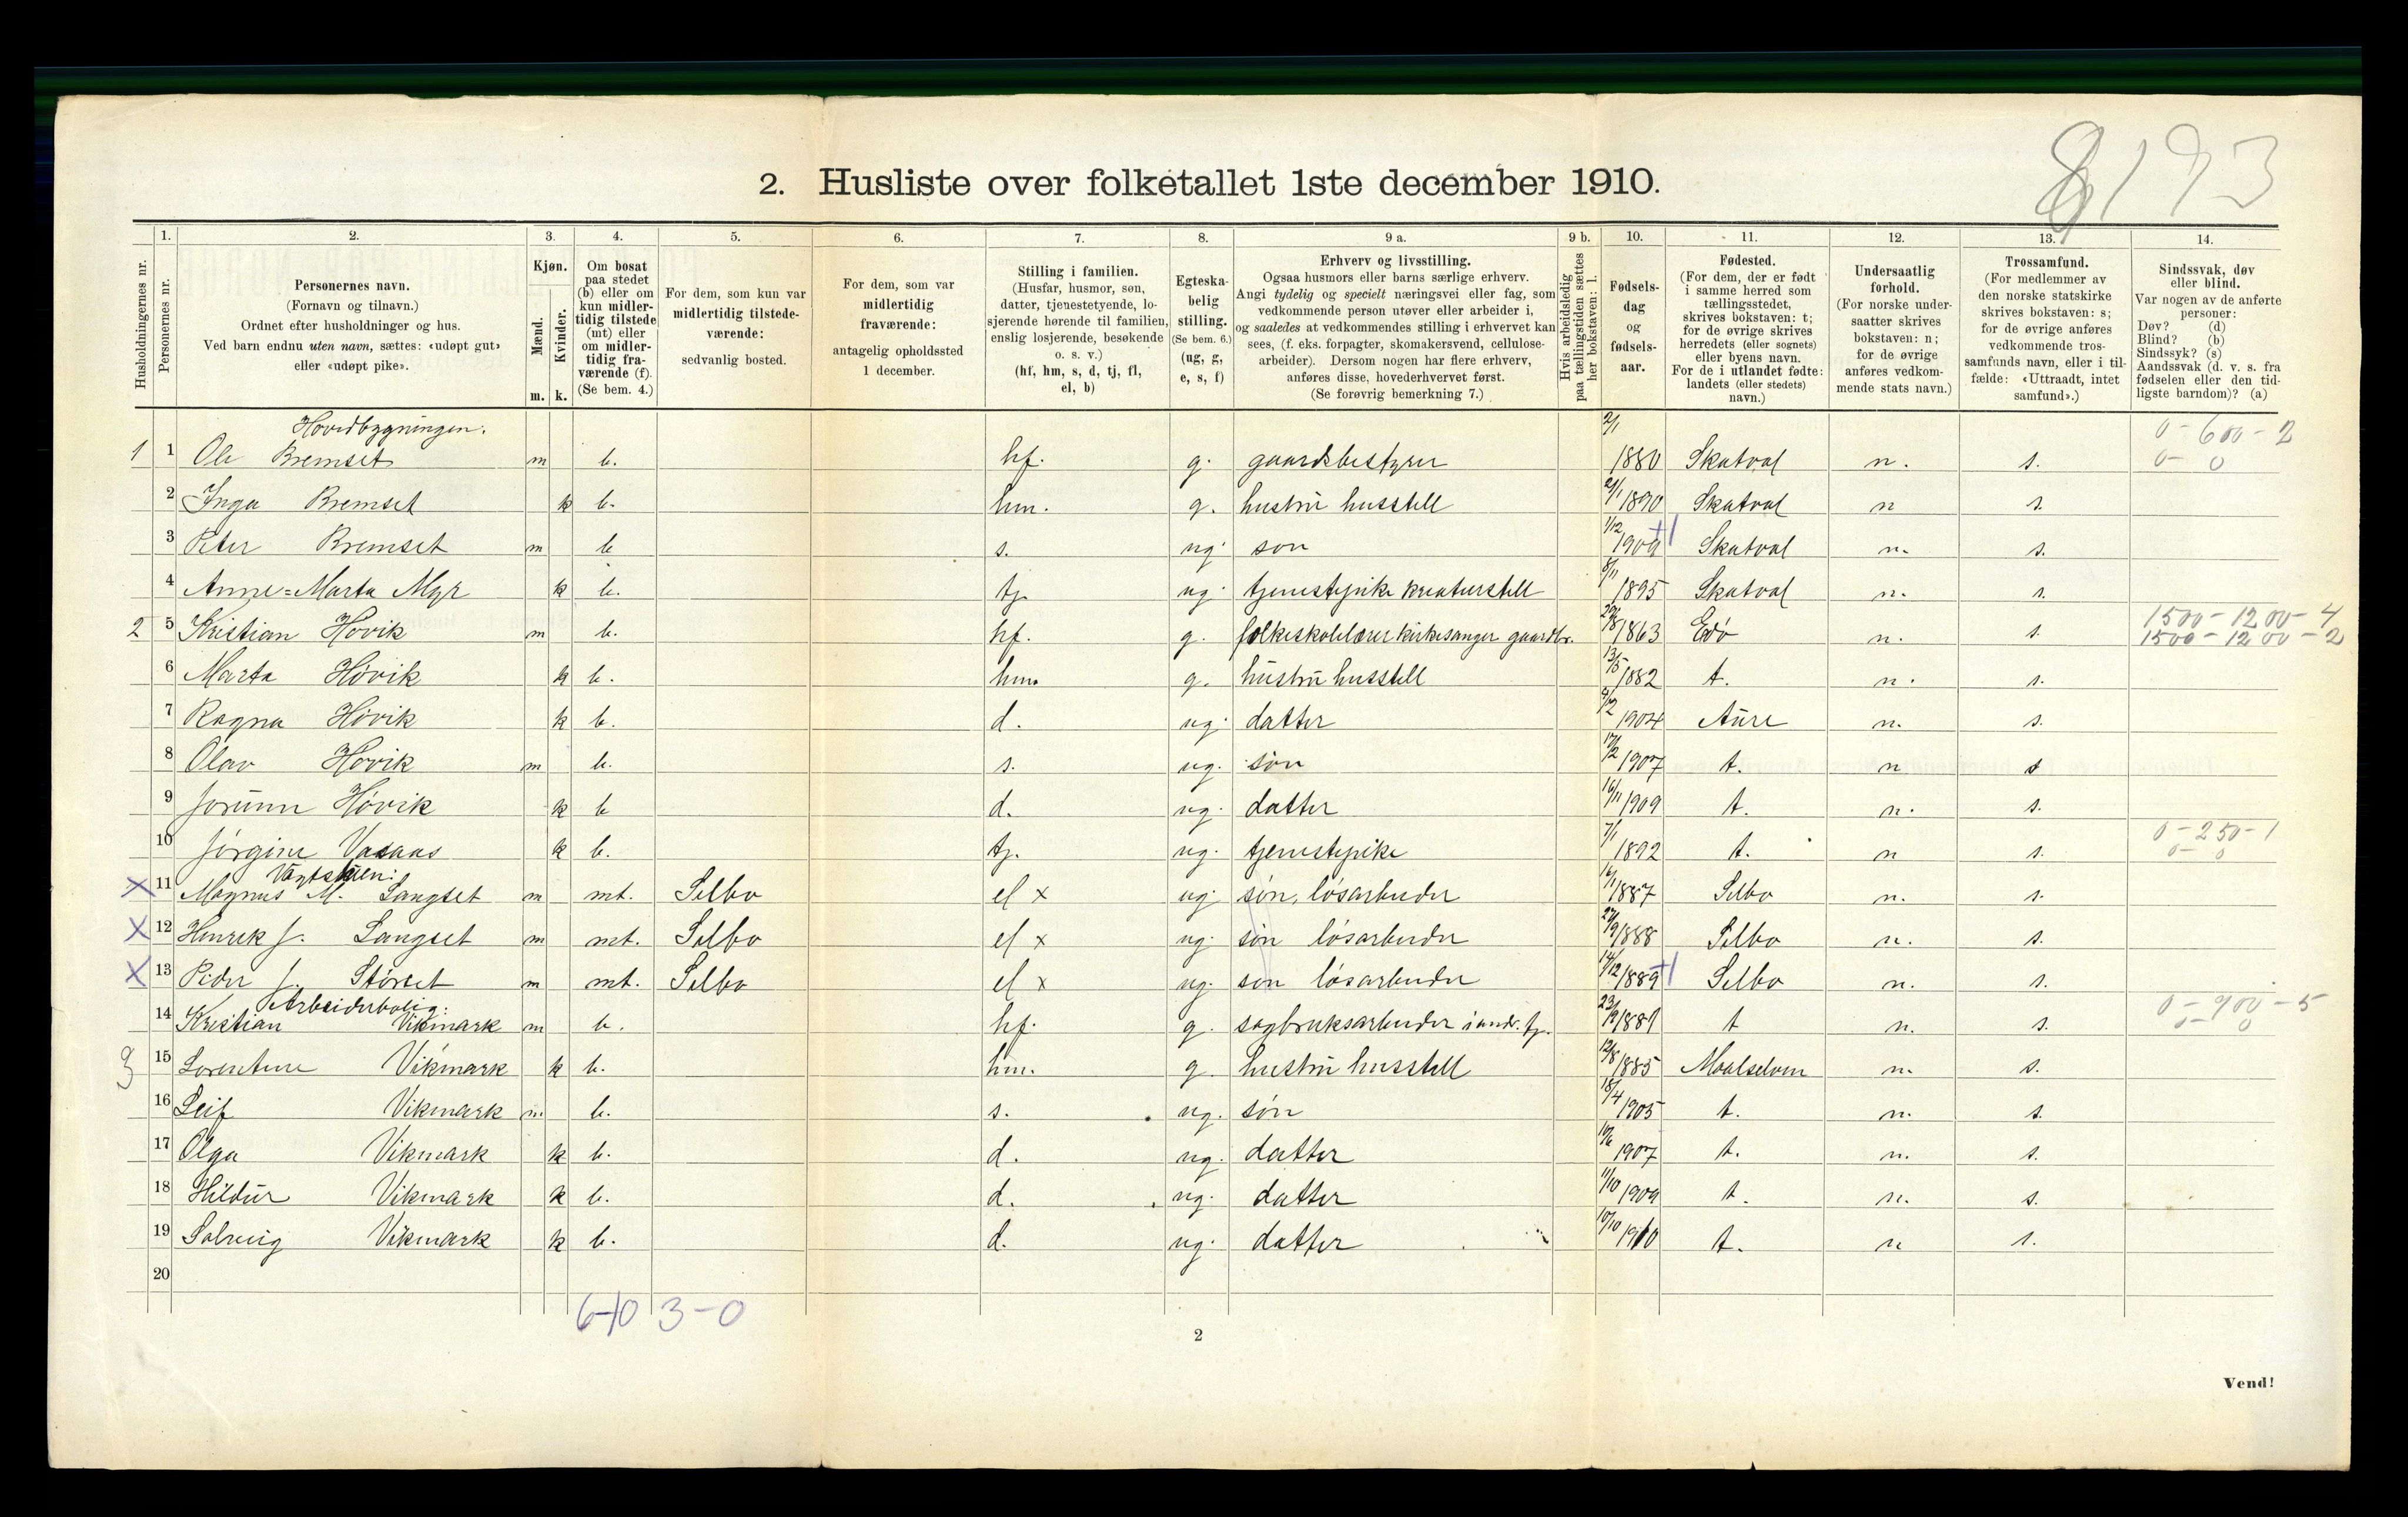 2. Husliste over folketallet 1ste december 1910.
Husholdningernes nr.
1. Personernes nr.
2. Personernes navn.
(Fornavn og tilnavn.)
Ordnet efter husholdninger og hus.
Ved barn endnu uten navn, sættes: «udøpt gut»
eller «udøpt pike».
3. Kjøn.
Mænd. m.
Kvinder. k.
4. Om bosat
paa stedet
(b) eller om
kun midler-
tidig tilstede
(mt) eller
om midler-
tidig fra-
værende (f).
(Se bem. 4.)
5. For dem, som kun var
midlertidig tilstede-
værende:
sedvanlig bosted.
6. For dem, som var
midlertidig
fraværende:
antagelig opholdssted
1 december.
7. Stilling i familien.
(Husfar, husmor, søn,
datter, tjenestetyende, lo-
sjerende hørende til familien,
enslig losjerende, besøkende
o. s. v.)
(hf, hm, s, d, tj, fl,
el, b)
8. Egteska-
belig
stilling.
(Se bem. 6.)
(ug, g,
e, s, f)
9 a. Erhverv og livsstilling.
Ogsaa husmors eller barns særlige erhverv.
Angi tydelig og specielt næringsvei eller fag, som
vedkommende person utøver eller arbeider i,
og saaledes at vedkommendes stilling i erhvervet kan
sees, (f. eks. forpagter, skomakersvend, cellulose-
arbeider). Dersom nogen har flere erhverv,
anføres disse, hovederhvervet først.
(Se forøvrig bemerkning 7.)
9 b. Hvis arbeidsledig
paa tællingstiden sættes
her bokstaven: l.
10. Fødsels-
dag
og
fødsels-
aar.
11. Fødested.
(For dem, der er født
i samme herred som
tællingsstedet,
skrives bokstaven: t;
for de øvrige skrives
herredets (eller sognets)
eller byens navn.
For de i utlandet fødte:
landets (eller stedets)
navn.)
12. Undersaatlig
forhold.
(For norske under-
saatter skrives
bokstaven: n;
for de øvrige
anføres vedkom-
mende stats navn.)
13. Trossamfund.
(For medlemmer av
den norske statskirke
skrives bokstaven: s;
for de øvrige anføres
vedkommende tros-
samfunds navn, eller i til-
fælde: «Uttraadt, intet
samfund».)
14. Sindssvak, døv
eller blind.
Var nogen av de anførte
personer:
Døv? (d)
Blind? (b)
Sindssyk? (s)
Aandssvak (d. v. s. fra
fødselen eller den tid-
ligste barndom)? (a)
Hovedbygningen. 0-600-2
1 1 Ole Bremset m b. hf. g. gaardsbestyrer 2/1 1880 Skatval n. s. 0- 0
2 Inga Bremset k b. hm. g. hustru husstell 1890 Skatval n s.
3 Peter Bremset m b s. ug. son 1/12 1909 Skatval n. s.
4 Anne=Marta Myr k b. tj. ug. tjenestepike kreaturstell 8/11 1895 Skatval n. s.
2 5 Kristian Høvik m b. hf. g. folkeskolelærer kirkesanger gaardbr. 1863 Edø n. s. 1500-1200-4
1500-1200-2
6 Marta Høvik k b. hm. g. hustru husstell 13/5 1882 t. n. s.
7 Ragna Høvik k b. d. ug. datter 1904 Aure n. s.
8 Olav Høvik m b. s. ug. søn 17/2 1907 t. n s
9 Jorunn Høvik k b d. ug. datter 16/11 1909 t. n. s.
10 Jørgine Vasaas k b. tj. ug. tjenestepike 7/1 1892 t. n s. 0-250-1
0- 0
11 Magnus M. Langset m mt. Selbo el x ug. søn, løsarbeider 16/1 1887 Selbo n. s.
12 Henrek J. Langset m mt. Selbo el x ug. søn løsarbeider 27/9 1888 Selbo n. s.
13 Peder J. Størset m mt. Selbo el x ug. søn løsarbeider 14/12 1889 Selbo n. s.
Arbeiderbolig:
14 Kristian Vikmark m b. hf. g. sagbruksarbeider i andr. tj. 1881 t n. s. 0-900-5
0- 0
3 15 Lorentine Vikmark k b. hm. g. hustru husstell 12/8 1885 Maalselven n. s.
16 Leif Vikmark m b. s. ug. søn 18/4 1905 t. n. s.
17 Olga Vikmark k b. d. ug. datter 10/6 1907 t. n. s.
18 Hildur Vikmark k b. d. ug. datter 11/10 1909 t. n. s.
19 Solveig Vikmark k b. d. ug. datter 10/10 1910 t. n s.
20
6-10 3-0
2
Vend!